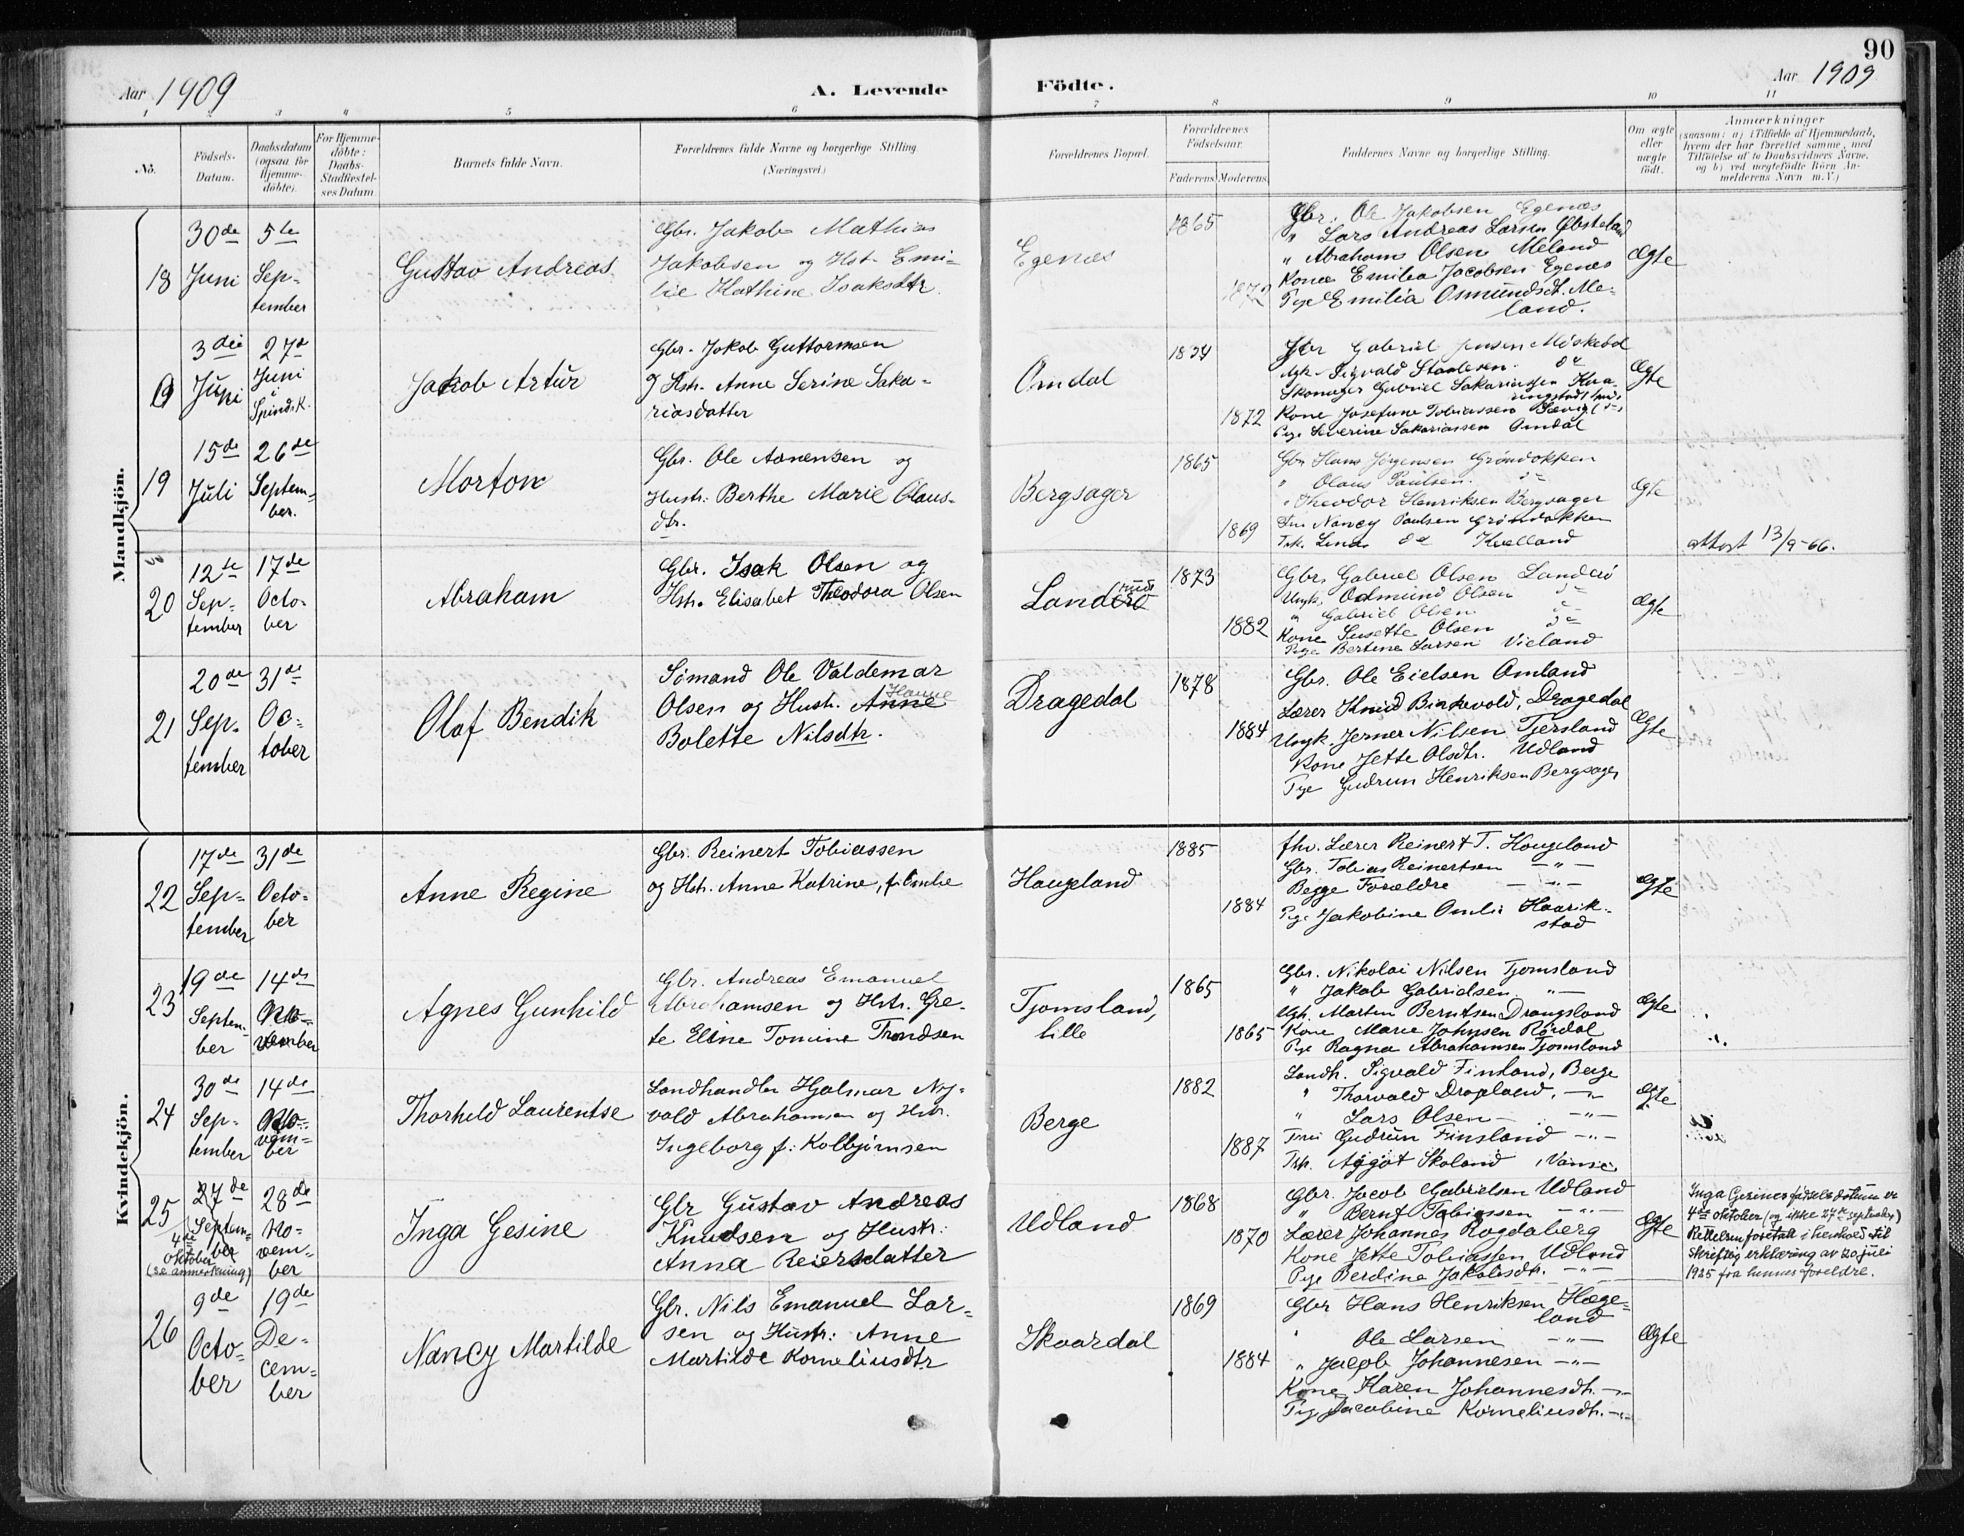 90
Aar 1909
A. Levende
Födte.
Aar 1909
1 2 3 4 5 6 7 8 9 10 11
No.
Födsels-
Datum.
Daabsdatum
(ogsaa for
Hjemme-
döbte).
For Hjemme-
döbte:
Daabs-
Stadfæstel-
ses Datum.
Barnets fulde Navn.
Forældrenes fulde Navne og borgerlige Stilling.
(Næringsvei.)
Forældrenes Bopæl.
Forældrenes
Födselsaar.
Faderens. Moderens.
Faddernes Navne og borgerlige Stilling.
Om ægte
eller
uægte
födt.
Anmærkninger
(saasom: a) i Tilfælde af Hjemmedaab,
hvem der har forrettet samme, med
Tilföielse af to Daabsvidners Navne,
og b) ved uægtefödte Börn An-
melderens Navn m. V.)
Mandkjön.
18
30de
Juni
5te
Sep-
tember
Gustav Andreas
Gbr. Jakob Mathias
Jakobsen og Hst. Emi-
lie Kathine Isaksdtr
Egenæs
1865
1872
Gbr. Ole Jakobsen Egenæs
" Lars Andreas Larsen
" Abraham Olsen Meland
Kone Emilia Jacobsen Egenes
Pige Emilia Osmundsdt. Me-
land.
Ægte
19
3die
Juni
27d
Juni
i
Spinds K.
Jakob Artur
Gbr. Jakob Guttormsen
og Hstr. Anne Serine Saka-
riasdatter
Omdal
1872
Gbr Gabriel Jensen
Ugk. Sigvald Staalesen. do
Skomager Gabriel Sakariassen
Kone Josefine Tobiassen
Pige Severine Sakariassen Omdal
Ægte
19
15de
Juli
26de
Septem-
ber.
Morton
Gbr. Ole Aanensen og
Hustr: Berthe Marie Olaus-
dtr.
Bergsager
1865
1869
Gbr Hans Jørgensen Grøndokken
" Olaus Paulsen. do
" Theodor Henriksen Bergsager
Fru Nancy Paulsen Grøndokken
Frk. Lina do Kvelland
Ægte
attest 13/9-66.
20
12te
Sep-
tember
17de
Octo-
ber
Abraham
Gbr. Isak Olsen og
Hstr. Elisabet Theodora Olsen
1873
1882
Gbr. Gabriel Olsen Landerø
Ungk. Odmund Olsen do
" Gabriel Olsen do
Kone Susette Olsen do
Pige Bertine Larsen Vieland
Ægte
21
20de
Sep-
tember
31de
Oc-
tober
Olaf Bendik
Sømand Ole Valdemar
Hanne
Olsen og Hustr. Anne
Bolette Nilsdtr.
Dragedal
1878
1884
Gbr. Ole Eielsen Omland
Lærer Knud Birkevold, Dragedal
Ungk. Jerner Nilsen Tjersland
Kone Jette Olsdtr. Udland
Pige Gudrun Henriksen Bergsager
Ægte
Kvindekjön.
22
17de
Sep-
tember
31de
Octo-
ber
Anne Regine
Gbr. Reinert Tobiassen
og Hstr. Anne Katrine, f. Omlie
Haugeland
1885
1884
fhv. Lærer Reinert T. Haugeland
Gbr. Tobias Reinertsen —"—
Begge Forældre —"—
Pige Jakobine Omli Haarik-
stad
Ægte
23
19de
Septem-
ber
14de
No-
vember
Agnes Gunhild
Gbr. Andreas Emanuel
Abrahamsen og Hstr. Gre-
te Eline Tomine Trondsen
Tjomsland,
lille
1865
1865
Gbr. Nikolai Nilsen Tjomsland
" Jakob Gabrielsen —"—
Ugk. Martin Berntsen Drangsland
Kone Marie Johnsen Rørdal
Pige Ragna Abrahamsen Tjomsland
Ægte
24
30de
Sep-
tember
14de
No-
vem-
ber
Thorhild Laurentse
Landhandler Hjalmar Ny-
vald Abrahamsen og Hstr.
Ingeborg f: Kolbjørnsen
Berge
1882
1887
Landh. Sigvald Finsland, Berge
" Thorvald Dragland, —"—
" Lars Olsen —"—
Frøi Gudrun Finsland —"—
Frk. Aggot Skoland, Vanse
Ægte
25
27de
Septem-
ber
4de
Oktober
(se anmerkning)
28de
No-
vem-
ber
Inga Gesine
Gbr Gustav Andreas
Knudsen og Hustr:
Anna Reiersdatter
Udland
1868
1870
Gbr. Jacob Gabrielsen Udland
" Bernt Tobiassen —"—
Lærer Johannes Rogdaberg
Kone Jette Tobiassen Udland
Pige Berdine Jakobsdtr. —"—
Ægte
Inga Gesines fødselsdatum er
4de oktober (og ikke 27de september)
Rettelsen foretatt i henhold til
skriftlig erklæring av 20 juli
1925 fra hennes foreldre.
26
9de
Octo-
ber
19de
De-
cem-
ber
Nancy Martilde
Gbr. Nils Emanuel Lar-
sen og Hustr: Anne
Martilde Korneliusdtr
Skoardal
1869
1884
Gbr Hans Henriksen Hæge-
land
" Ole Larsen —"—
" Jacob Johannesen —"—
Kone Karen Johannesdtr. —"—
Pige Jacobine Korneliusdtr. —"—
Ægte